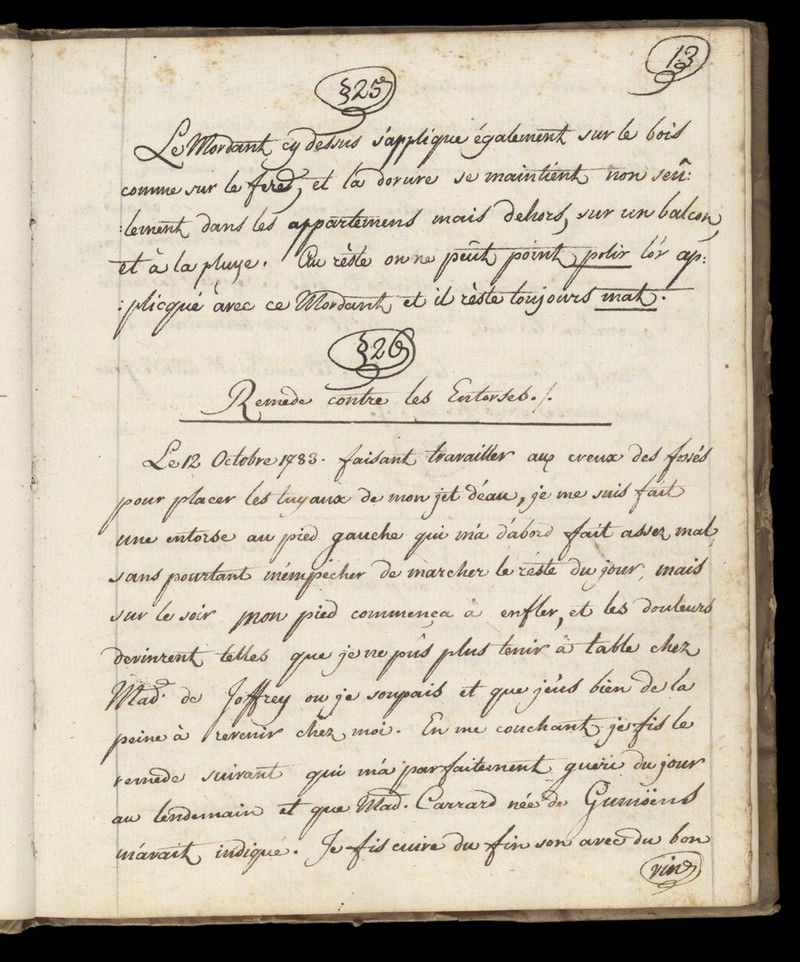 13
§25
Le Mordant cy dessus s'applique également sur le bois
comme sur le fered, et la dorure se maintient non seû:
:lement dans les appartemens mais dehors, sur un balcon,
et à la pluye. Au rèste on ne peût point polir l'or ap:
:plicqué avec ce Mordant, et il rèste toujours mat.
§26
Remede contre les Entorses./.
Le 12 Octobre 1783. faisant travailler aux creux des fossés
pour placer les tuyaux de mon jèt d'éau, je me suis fait
une entorse au pied gauche qui m'a d'abord fait assez mal,
sans pourtant m'émpécher de marcher le réste du jour, mais
sur le soir mon pied commença à enfler, et les douleurs
devinrent telles que je ne pûs plus tenir à table chez
Madᵉ. de Joffrey ou je soupais et que j'éus bien de la
peine à revenir chez moi. En me couchant je fis le
remede suivant qui m'a parfaitement guéri du jour
au lendemain et que Mad. Carrard née de Gumöens
m'avait indiqué. Je fis cuire du fin son avec du bon
vin